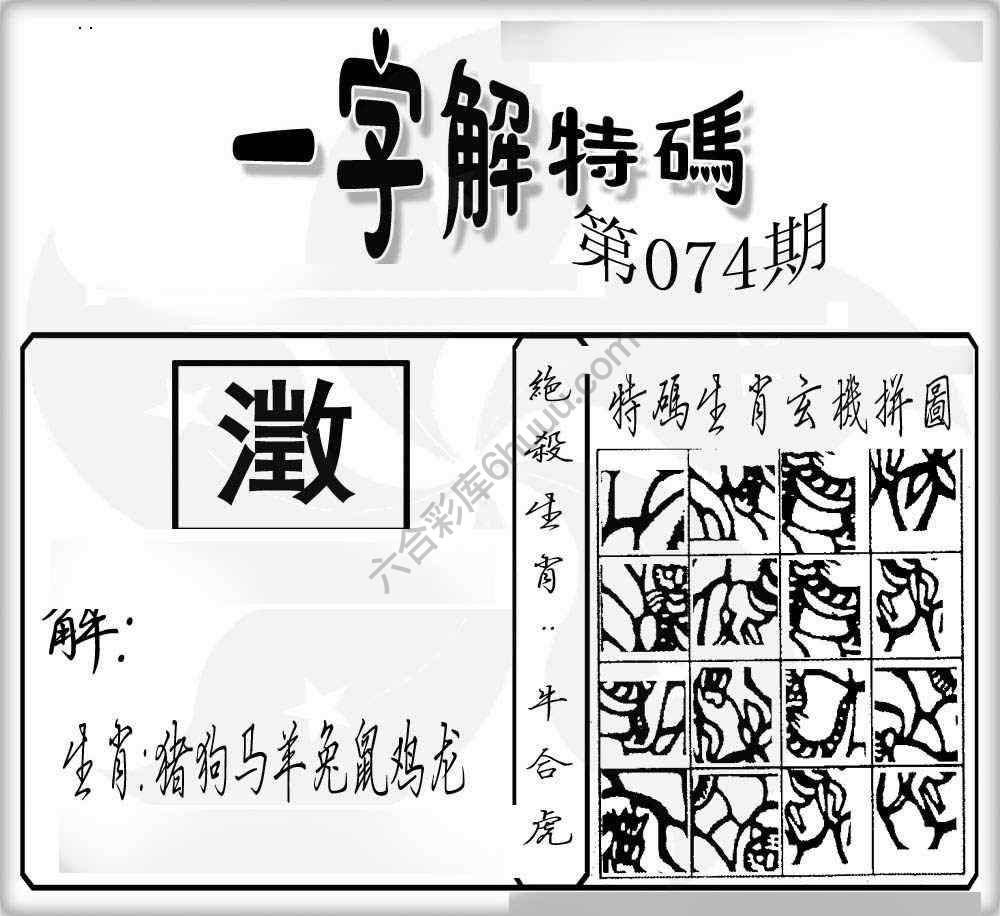 一字解特碼
第074期
澂
解:
生肖:猪狗马羊兔鼠鸡龙
絶殺生肖:牛合虎
特碼生肖玄機拼圖
六合彩库6huuu.com